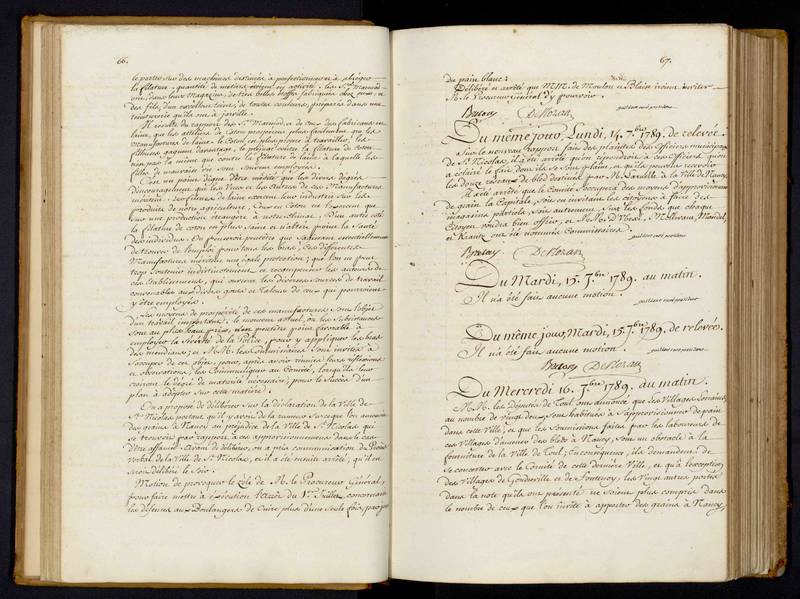 66.
le porter sur des machines destinées à perfectionner et à
la filature, quantité de métiers en activité. les Srs
ont, dans leurs magazins, de très belles étoffes fabriquées chez eux, et
des fils, d'un excellent teint, de toutes couleurs, préparés dans une
teinturerie qu'ils ont à Joinville.
Il résulte du rapport des Srs et de ceux des fabricans en
laine, que les atteliers de Coton prosperent plus facilement que les
manufactures de laine; le Coton est plus propre à travailler, les
fileuses gagnent davantage, le préjugé contre la filature de coton
n'est pas le même que contre la filature de laine à laquelle les
filles de mauvaise vie sont souvent employées.
C'est un point digne d'être médité que les divers degrés
d'encouragement que les Unes et les Autres de ces Manufactures
méritent. Les filatures de laine exercent leur industrie sur les
produits de notre agriculture, Ceux en Coton ne l'exercent que
sur une production étrangère à notre climat. D'un autre côté
la filature de coton est plus saine et n'altère point la Santé
des individus. On pourroit peut être que s'agissant essentiellement
de trouver de l'emploi pour tous les bras, Ces différentes
Manufactures méritent une égale protection; que l'on ne peut
trop soutenir indistinctement et récompenser les auteurs de
ces Etablissements, qui ouvrent les diverses sources de travail
convenables aux divers gouts et talens de ceux qui pourroient
y être employés.
Les moyens de prospérité de ces manufactures sont l'objet
d'un travail important. le moment actuel, où les Subsistances
sont au plus haut prix, n'est peut être point favorable à
employer la Sévérité de la Police, pour y appliquer les bras
des mendians; et M.M. les Commissaires sont invités à
s'occuper de cet objet, pour, après avoir réuni leurs réflexions
et observations, les Communiquer au Comité, lorsqu'ils leur
croiront le degré de maturité nécessaire, pour le succès d'un
plan à adopter sur cette matière.
On a proposé de délibérer sur la déclaration de la Ville de
St. Nicolas portant qu'il y avoit de la rumeur sur ce que l'on amenoit
des grains à Nancy au préjudice de la Ville de St. Nicolas qui
se trouvoit par rapport à ses approvisionnemens dans le cas
d'être affamée. Avant de délibérer, on a pris communication du Procès
verbal de la Ville de St. Nicolas, et il a été ensuite arrêté, qu'il en
seroit délibéré le Soir.
Motion de provoquer le zèle de M. le Procureur Général,
pour faire mettre à exécution l'arrêt du 1er Juillet, concernant
les défenses aux Boulangers de Cuire plus d'une seule fois, par jour
67.
du pain blanc:
Délibéré et arrêté que M.M. de Moulon et Blaise iroient inviter
M. le Procureur Général d'y pourvoir.
DeNozan
Du même jour, Lundi, 14. 7bre 1789. de relevée.
Sur le nouveau rapport fait des plaintes des Officiers municipaux
de St. Nicolas, il a été arrêté qu'on répondroit à ces Officiers qu'on
a éclairci le fait dont ils se sont plaint, et qu'ils peuvent recevoir
les douze resaux de bled destinés par M. à la Ville de Nancy.
Il a été arrêté que le Comité s'occupera des moyens d'approvisionner
de grain la Capitale, soit en invitant les citoyens à faire des
magazins partiels, soit autrement, sur les fonds que chaque
Citoyen voudra bien offrir, et M.M. Mandel,
et ont été nommés Commissaires.
DeNozan
Du Mardi, 15. 7bre 1789. au matin.
Il n'a été fait aucune motion.
Du même jour, Mardi, 15. 7bre 1789. de relevée.
Il n'a été fait aucune motion.
DeNozan
Du Mercredi 16. 7bre 1789. au matin.
M.M. les Députés de Toul ont annoncé que les Villages Lorrains
au nombre de vingt deux sont habitués à s'approvisionner de pain
dans cette Ville, et que les soumissions faites par les laboureurs de
ces Villages d'amener des bleds à Nancy, sont un obstacle à la
fourniture de la Ville de Toul; En conséquence, ils demandent de
se concerter avec le Comité de cette dernière Ville, et qu'à l'exception
des Villages de Gondreville et de Fontenoy, les Vingt autres portés
dans la note qu'ils ont présenté ne soient plus compris dans
le nombre de ceux que l'on invite à apporter des grains à Nancy,